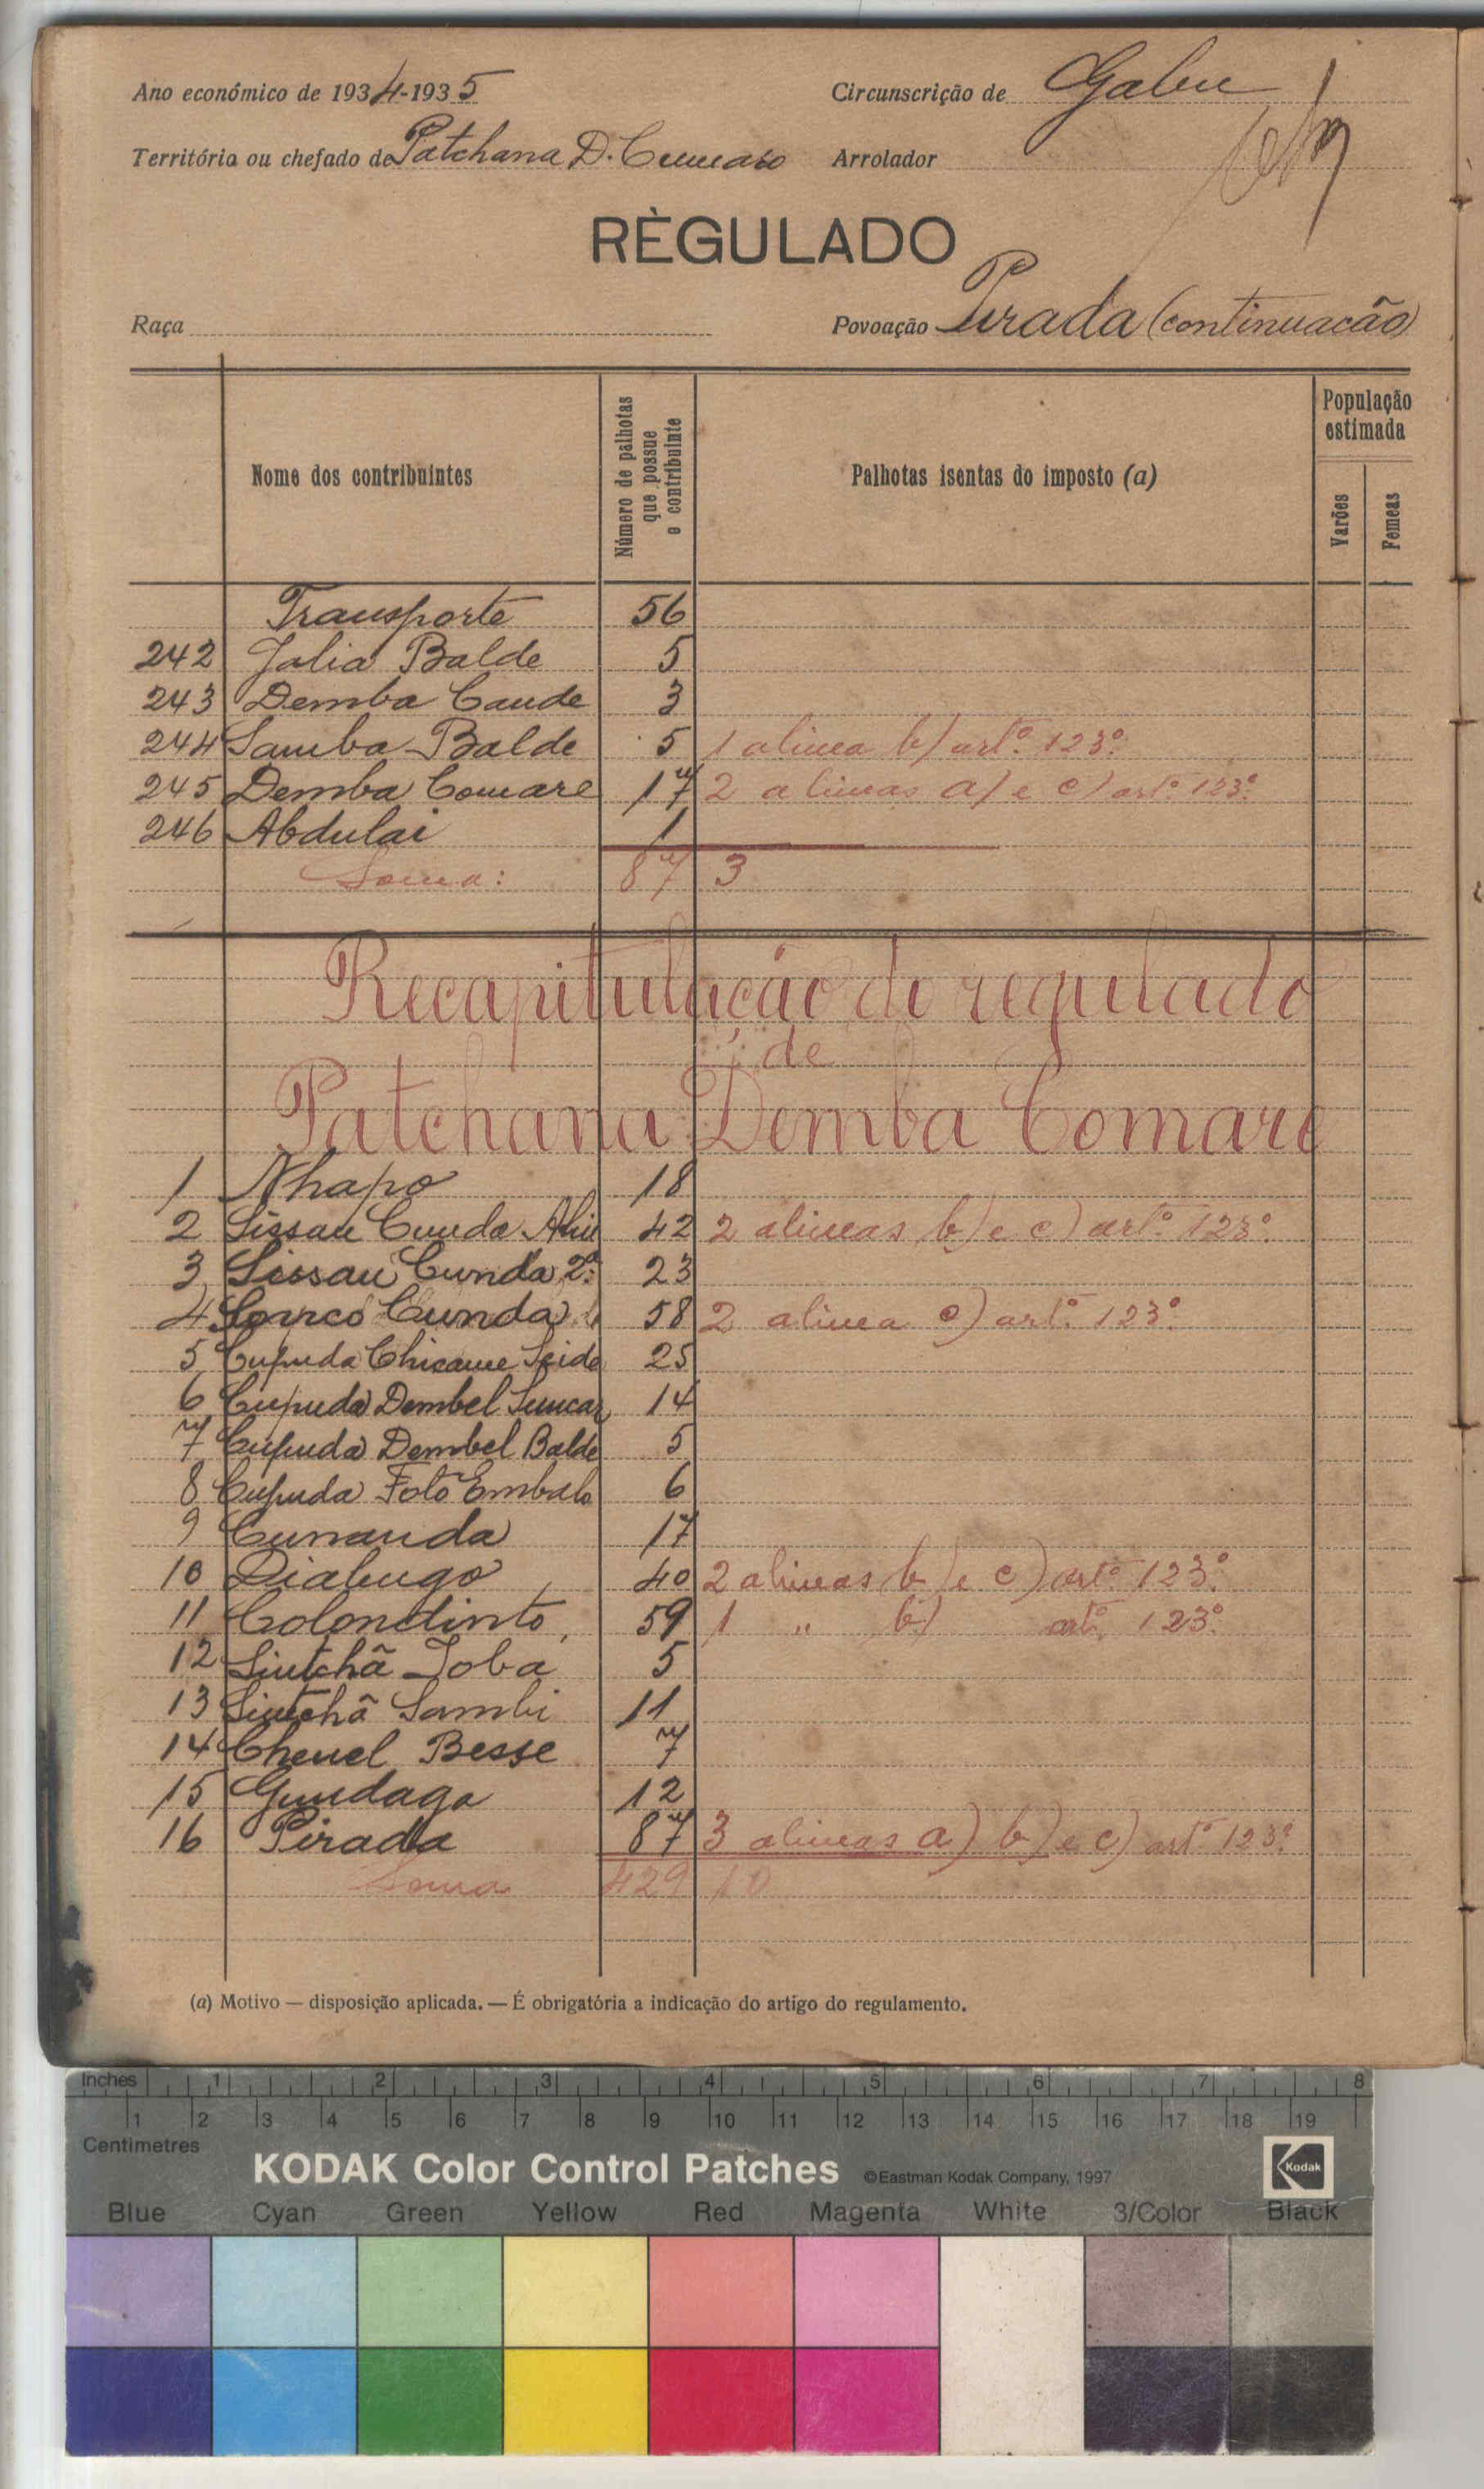 Ano económico de 1934-1935 Circunscrição de Gabu
Território ou chefado de Patchana D. Cumaro Arrolador
RÈGULADO
Raça Povoação Pirada (continuacão)
Nome dos contribuintes Número de palhotas que possue o contribuinte Palhotas isentas do imposto (a) População estimada Varões Femeas
Transporte 56
242 Jalia Balde 5
243 Demba Cande 3
244 Samba Balde 5 1 alinea b) artº. 123º.
245 Demba Comare 17 2 alineas a) e c) artº. 123º.
246 Abdulai 1
Soma: 87 3
Recapitulação do regulado
de
Patchana Demba Comare
1 Nhapo 18
2 Sissau Cunda Aliu 42 2 alineas b) e c) artº. 123º.
3 Sissau Cunda 2º. 23
4 Cunda 58 2 alinea c) artº. 123º.
5 Cupuda Chicame Seide 25
6 Cupuda Dembel 14
7 Cupuda Dembel Balde 5
8 Cupuda Foto Embalo 6
9 Cumanda 17
10 Diabugo 40 2 alineas b) e c) artº. 123º.
11 Colondinto 59 1 " b) artº. 123º.
12 Sintchã Joba 5
13 Sintchã Sambi 11
14 Chenel Besse 7
15 Gundaga 12
16 Pirada 87 3 alineas a) b) e c) artº. 123º.
Soma 429 10
(a) Motivo — disposição aplicada. — É obrigatória a indicação do artigo do regulamento.
Inches 1 2 3 4 5 6 7 8
1 2 3 4 5 6 7 8 9 10 11 12 13 14 15 16 17 18 19
Centimetres
KODAK Color Control Patches ©Eastman Kodak Company, 1997 Kodak
Blue Cyan Green Yellow Red Magenta White 3/Color Black